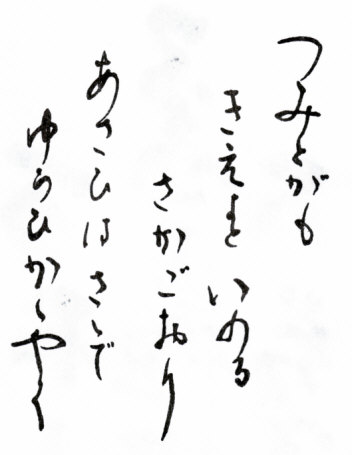 つみとがも
きえよと いのる
さかごおり
あさひはさゝで
ゆうひかゝやく